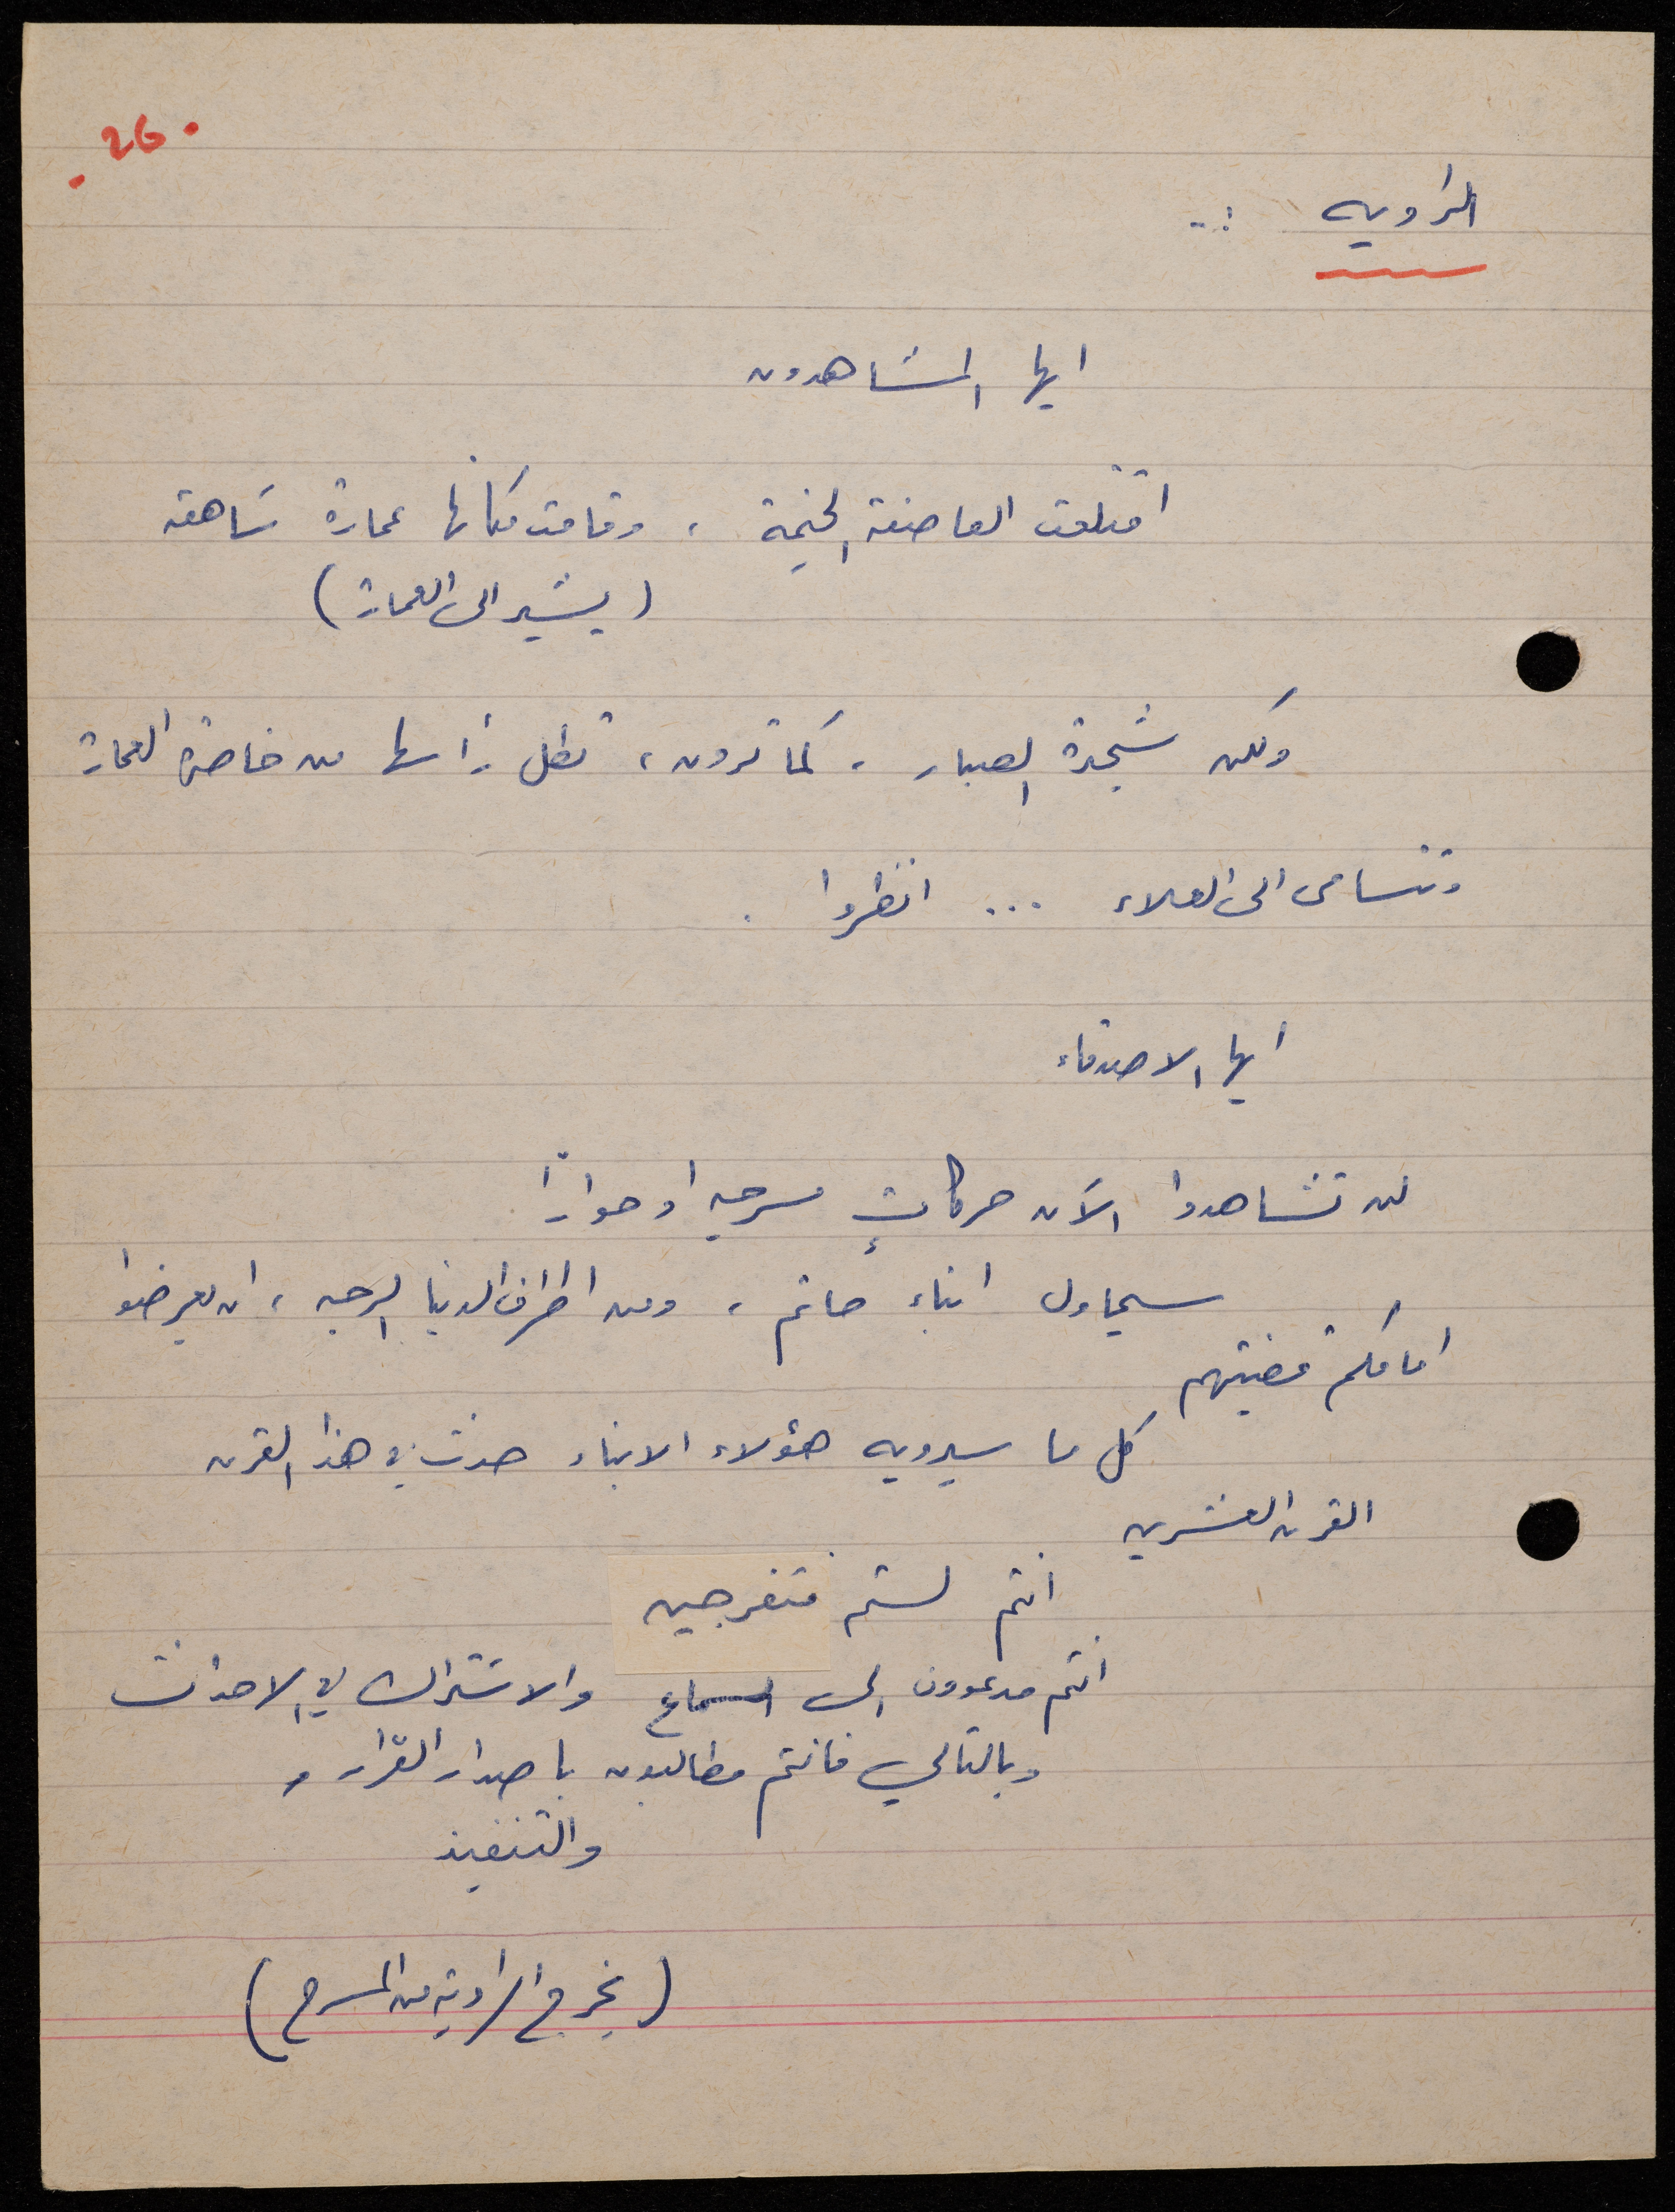 . 26 .
الراويه :-
ايها المشاهدون
اقتلعت العاصفة الخيمة ، وقامت مكانها عمارة شاهقه
( يشير الى العمارة )
ولكن شجرة الصبار ، كما ترون ، تطل رأسها من خاصرة العمارة
وتتسامى الى العلاء ... انظروا .
ايها الاصدقاء
لن تشاهدوا الآن حركاتٍ مسرحيه او حواراً
سيحاول ابناء حاتم ، ومن اطراف الدنيا الرحبه ، ان يعرضوا
امامكم قضيتهم
كل ما سيرويه هؤلاء الابناء حدث في هذا القرن
القرن العشرين
انتم لستم متفرجين
انتم مدعوون الى السماع والاشتراك في الاحداث
وبالتالي فانتم مطالبون باصدار القرار و
والتنفيذ
( يخرج الراويه من المسرح )